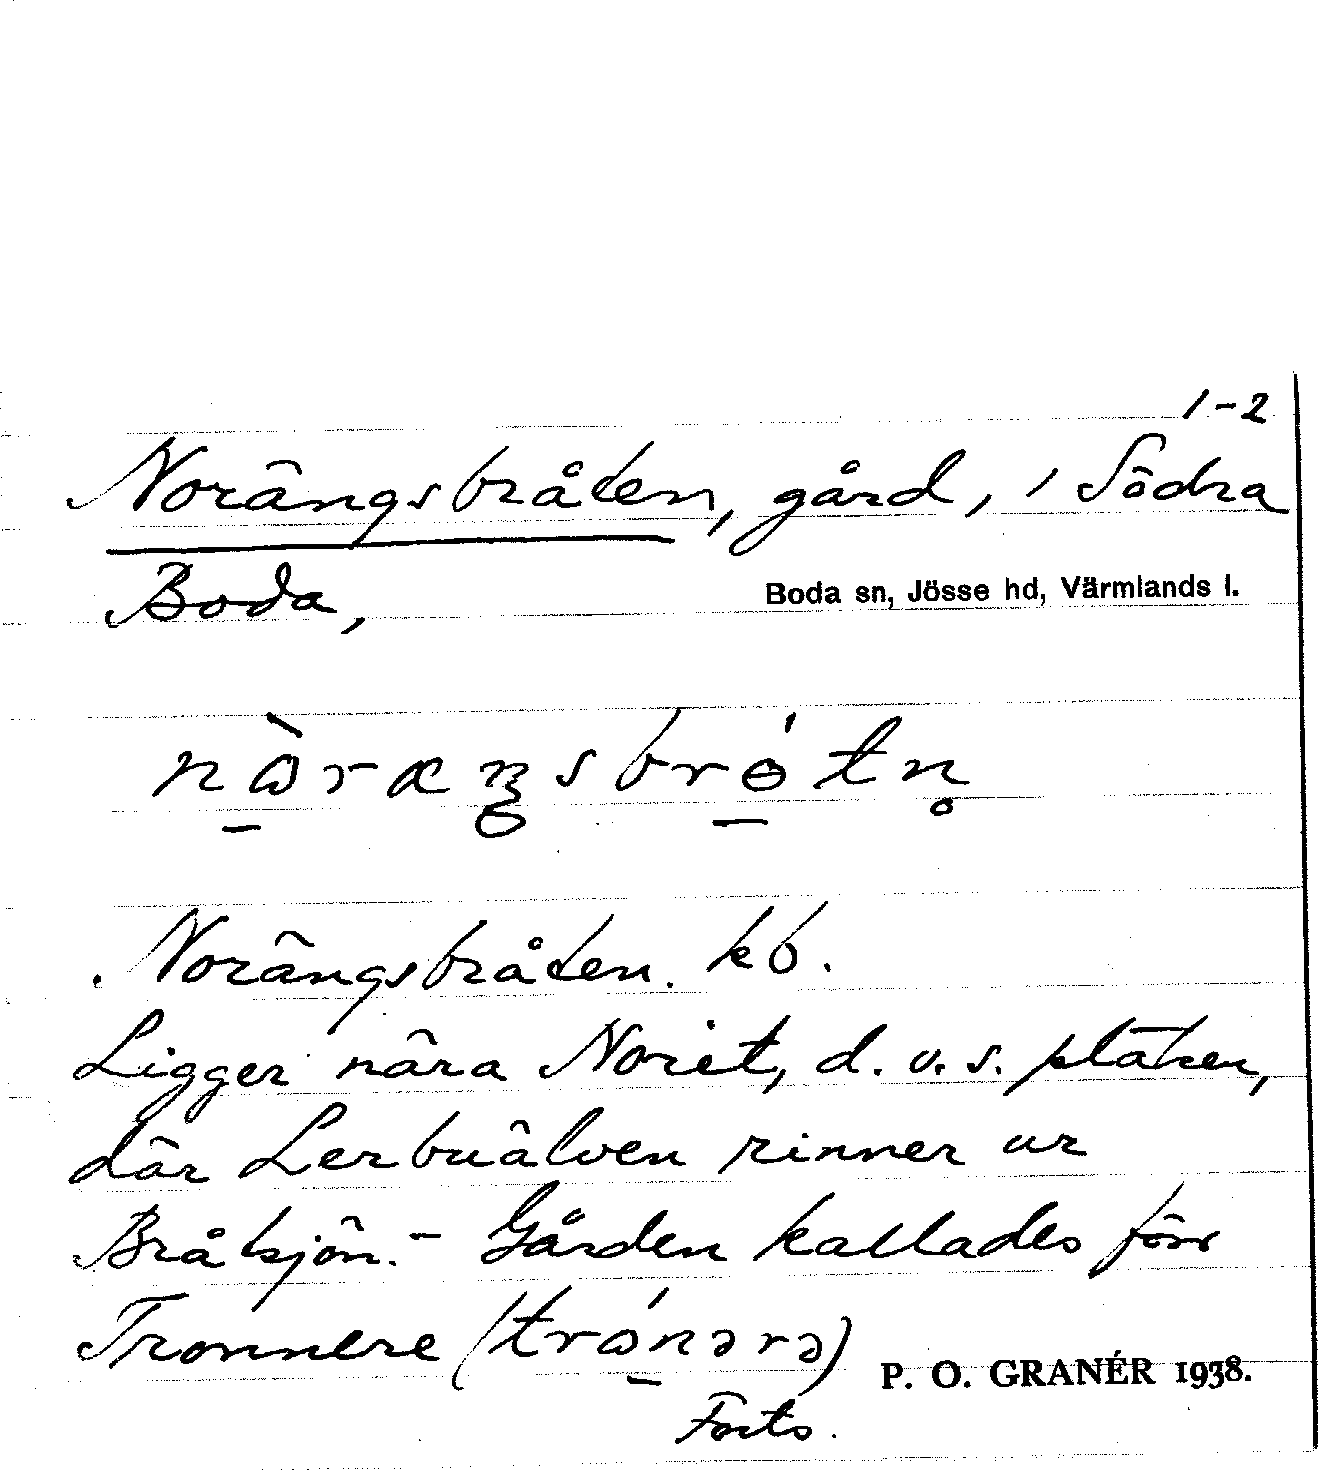 1-2
Norängsbråten, gård, i Södra
Boda,
Boda sn, Jösse hd, Värmlands l.
Norängsbråten. kb.
Ligger nära Noret, d. v. s. platsen,
där Lerbuälven rinner ur
Bråtsjön. - Gården kallades förr
Tronnere (trɷ́nərə)
P. O. GRANÉR 1938.
Forts.